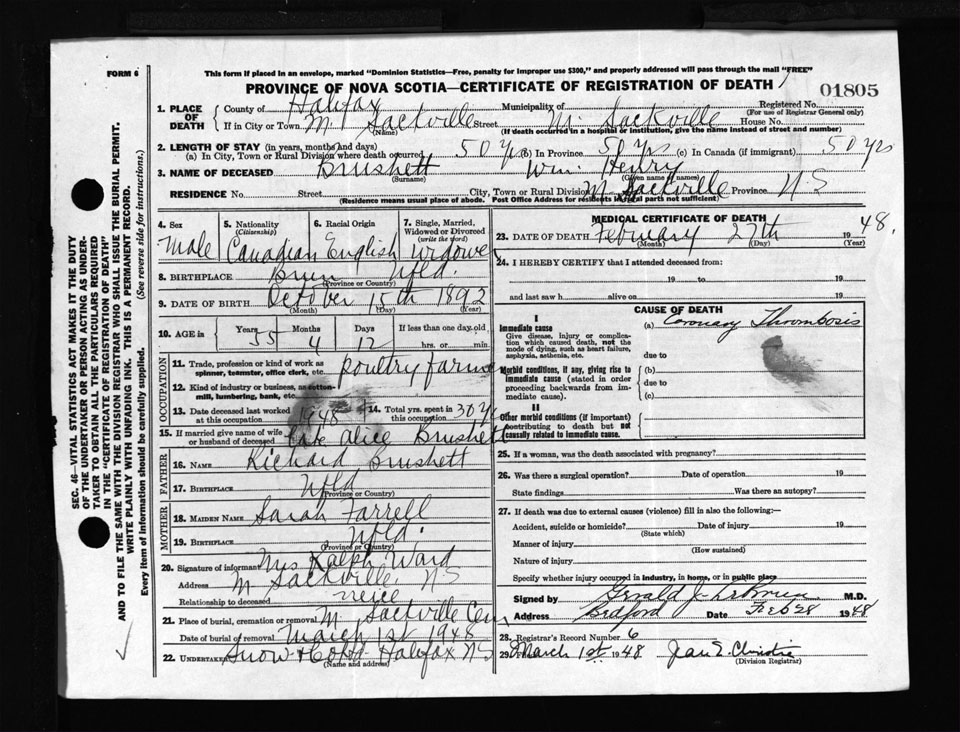 FORM 6
This form if placed in an envelope, marked "Dominion Statistics—Free, penalty for improper use $300," and properly addressed will pass through the mail "FREE"
PROVINCE OF NOVA SCOTIA—CERTIFICATE OF REGISTRATION OF DEATH
01805
1. PLACE OF DEATH { County of Halifax Municipality of Registered No.
(For use of Registrar General only)
If in City or Town M. Sackville Street M. Sackville House No.
(Name) (If death occurred in a hospital or institution, give the name instead of street and number)
2. LENGTH OF STAY (in years, months and days)
(a) In City, Town or Rural Division where death occurred 50 yrs (b) in Province 50 yrs (c) In Canada (if immigrant) 50 yrs
3. NAME OF DECEASED Brushett Wm. Henry
(Surname) (Given name or names)
RESIDENCE No. Street City, Town or Rural Division M Sackville Province N.S
(Residence means usual place of abode. Post Office Address for residents in rural parts not sufficient)
4. Sex Male
5. Nationality (Citizenship) Canadian
6. Racial Origin English
7. Single, Married, Widowed or Divorced (write the word) Widowe
8. BIRTHPLACE Nfld.
(Province or Country)
9. DATE OF BIRTH October 15th 1892
(Month) (Day) (Year)
10. AGE in { Years 55 Months 4 Days 12 If less than one day old hrs. or min.
OCCUPATION
11. Trade, profession or kind of work as spinner, teamster, office clerk, etc. poultry farme
12. Kind of industry or business, as cotton-mill, lumbering, bank, etc.
13. Date deceased last worked at this occupation 1948
14. Total yrs. spent in this occupation 30 yr
15. If married give name of wife or husband of deceased Alice Brushett
FATHER
16. NAME Richard Brushett
17. BIRTHPLACE Nfld
(Province or Country)
MOTHER
18. MAIDEN NAME Sarah Farrell
19. BIRTHPLACE Nfld.
(Province or Country)
20. Signature of informant Mrs Ralph Ward
Address M Sackville, NS
Relationship to deceased neice
21. Place of burial, cremation or removal M. Sackville Cem
Date of burial of removal March 1st 1948
22. Undertaker Snow Halifax NS
(Name and address)
MEDICAL CERTIFICATE OF DEATH
23. DATE OF DEATH February 27th 1948.
(Month) (Day) (Year)
24. I HEREBY CERTIFY that I attended deceased from:
19 to 19
and last saw h alive on 19
CAUSE OF DEATH
I
Immediate cause (a) Coronary Thrombosis
Give disease, injury or complication which caused death, not the mode of dying, such as heart failure, asphyxia, asthenia, etc.
due to
Morbid conditions, if any, giving rise to immediate cause (stated in order proceeding backwards from immediate cause).
(b)
due to
(c)
II
Other morbid conditions (if important) contributing to death but not causally related to immediate cause.
25. If a woman, was the death associated with pregnancy?
26. Was there a surgical operation? Date of operation 19
State findings Was there an autopsy?
27. If death was due to external causes (violence) fill in also the following:—
Accident, suicide or homicide? Date of injury 19
(State which)
Manner of injury
(How sustained)
Nature of injury
Specify whether injury occurred in industry, in home, or in public place
Signed by Gerald J. M.D.
Address Bedford Date Feb 28 1948
28. Registrar's Record Number 6
29. March 1st 1948 Jean E. Christie
(Division Registrar)
SEC. 46—VITAL STATISTICS ACT MAKES IT THE DUTY
OF THE UNDERTAKER OR PERSON ACTING AS UNDER-
TAKER TO OBTAIN ALL THE PARTICULARS REQUIRED
IN THE "CERTIFICATE OF REGISTRATION OF DEATH"
AND TO FILE THE SAME WITH THE DIVISION REGISTRAR WHO SHALL ISSUE THE BURIAL PERMIT.
WRITE PLAINLY WITH UNFADING INK. THIS IS A PERMANENT RECORD.
Every item of information should be carefully supplied. (See reverse side for instructions.)